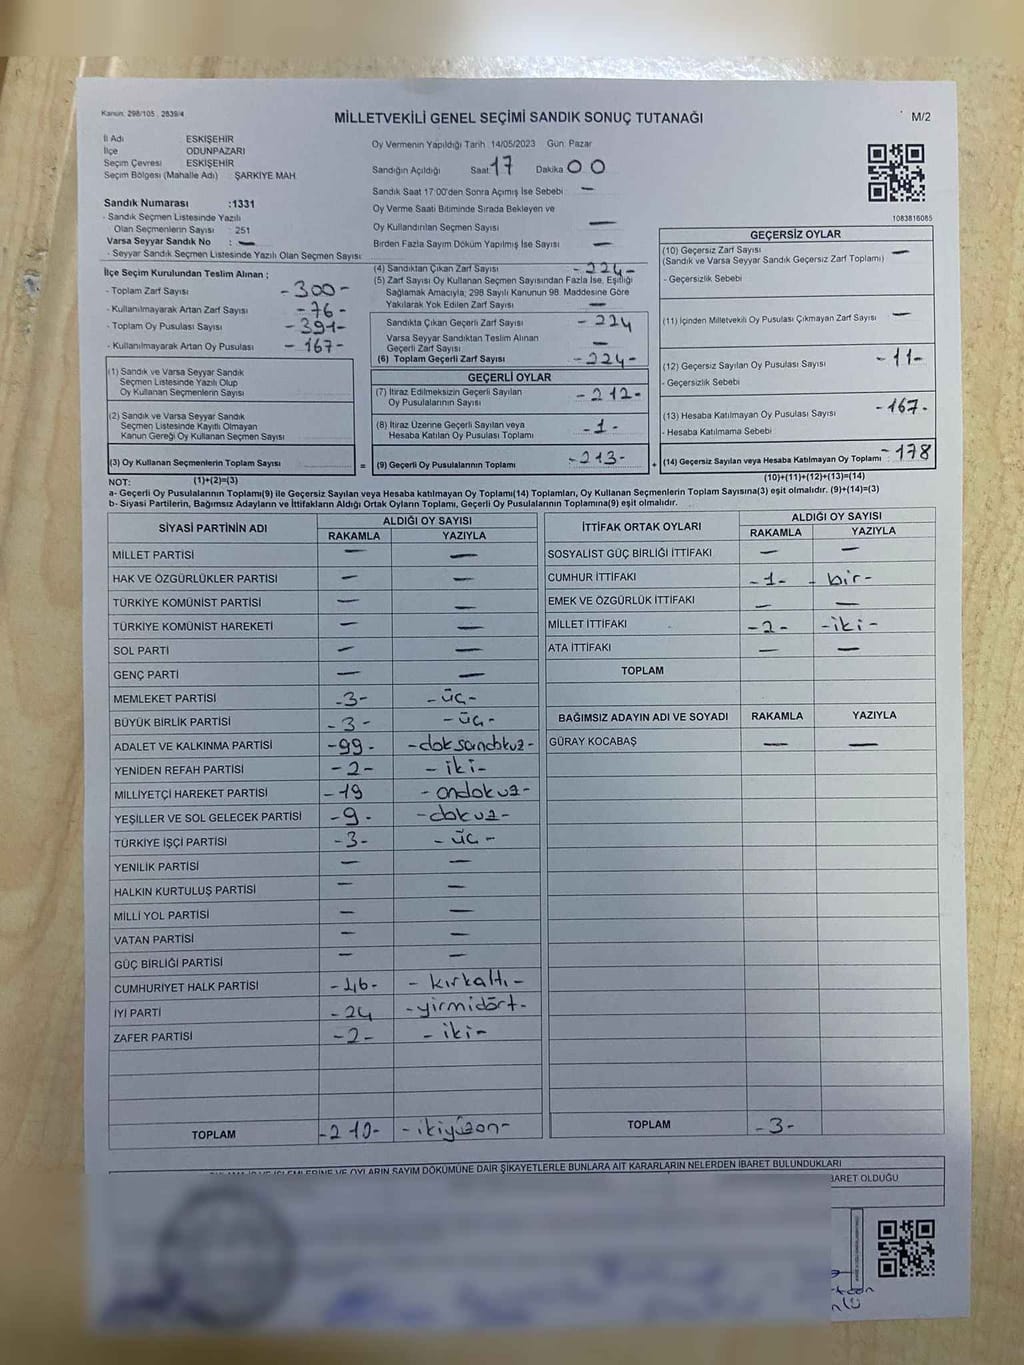 Kanun: 298/105 , 2839/4
MİLLETVEKİLİ GENEL SEÇİMİ SANDIK SONUÇ TUTANAĞI
M/2
İl Adı ESKİŞEHİR
İlçe ODUNPAZARI
Seçim Çevresi ESKİŞEHİR
Seçim Bölgesi (Mahalle Adı) ŞARKİYE MAH.
Oy Vermenin Yapıldığı Tarih 14/05/2023 Gün: Pazar
Sandığın Açıldığı Saat: 17 Dakika 00
Sandık Saat 17:00'den Sonra Açımış İse Sebebi —
Oy Verme Saati Bitiminde Sırada Bekleyen ve
Oy Kullandırılan Seçmen Sayısı —
Birden Fazla Sayım Döküm Yapılmış İse Sayısı —
1083816085
Sandık Numarası :1331
- Sandık Seçmen Listesinde Yazılı
Olan Seçmenlerin Sayısı : 251
Varsa Seyyar Sandık No : —
- Seyyar Sandık Seçmen Listesinde Yazılı Olan Seçmen Sayısı:
İlçe Seçim Kurulundan Teslim Alınan ;
- Toplam Zarf Sayısı -300-
- Kullanılmayarak Artan Zarf Sayısı -76-
- Toplam Oy Pusulası Sayısı -391-
- Kullanılmayarak Artan Oy Pusulası -167-
(1) Sandık ve Varsa Seyyar Sandık
Seçmen Listesinde Yazılı Olup
Oy Kullanan Seçmenlerin Sayısı
(2) Sandık ve Varsa Seyyar Sandık
Seçmen Listesinde Kayıtlı Olmayan
Kanun Gereği Oy Kullanan Seçmen Sayısı
(3) Oy Kullanan Seçmenlerin Toplam Sayısı
(1)+(2)=(3)
(4) Sandıktan Çıkan Zarf Sayısı -224-
(5) Zarf Sayısı Oy Kullanan Seçmen Sayısından Fazla İse, Eşitliği
Sağlamak Amacıyla; 298 Sayılı Kanunun 98. Maddesine Göre
Yakılarak Yok Edilen Zarf Sayısı —
Sandıkta Çıkan Geçerli Zarf Sayısı -224
Varsa Seyyar Sandıktan Teslim Alınan
Geçerli Zarf Sayısı —
(6) Toplam Geçerli Zarf Sayısı -224-
GEÇERLİ OYLAR
(7) İtiraz Edilmeksizin Geçerli Sayılan
Oy Pusulalarının Sayısı -212-
(8) İtiraz Üzerine Geçerli Sayılan veya
Hesaba Katılan Oy Pusulası Toplamı -1-
= (9) Geçerli Oy Pusulalarının Toplamı -213-
GEÇERSİZ OYLAR
(10) Geçersiz Zarf Sayısı —
(Sandık ve Varsa Seyyar Sandık Geçersiz Zarf Toplamı)
- Geçersizlik Sebebi
(11) İçinden Milletvekili Oy Pusulası Çıkmayan Zarf Sayısı —
(12) Geçersiz Sayılan Oy Pusulası Sayısı -11-
- Geçersizlik Sebebi
(13) Hesaba Katılmayan Oy Pusulası Sayısı -167-
- Hesaba Katılmama Sebebi
+ (14) Geçersiz Sayılan veya Hesaba Katılmayan Oy Toplamı -178
(10)+(11)+(12)+(13)=(14)
NOT:
a- Geçerli Oy Pusulalarının Toplamı(9) ile Geçersiz Sayılan veya Hesaba katılmayan Oy Toplamı(14) Toplamları, Oy Kullanan Seçmenlerin Toplam Sayısına(3) eşit olmalıdır. (9)+(14)=(3)
b- Siyasi Partilerin, Bağımsız Adayların ve İttifakların Aldığı Ortak Oyların Toplamı, Geçerli Oy Pusulalarının Toplamına(9) eşit olmalıdır.
SİYASİ PARTİNİN ADI ALDIĞI OY SAYISI
RAKAMLA YAZIYLA
MİLLET PARTİSİ — —
HAK VE ÖZGÜRLÜKLER PARTİSİ — —
TÜRKİYE KOMÜNİST PARTİSİ — —
TÜRKİYE KOMÜNİST HAREKETİ — —
SOL PARTİ — —
GENÇ PARTİ — —
MEMLEKET PARTİSİ -3- -üç-
BÜYÜK BİRLİK PARTİSİ -3- -üç-
ADALET VE KALKINMA PARTİSİ -99- -doksandokuz-
YENİDEN REFAH PARTİSİ -2- -iki-
MİLLİYETÇİ HAREKET PARTİSİ -19 -ondokuz-
YEŞİLLER VE SOL GELECEK PARTİSİ -9- -dokuz-
TÜRKİYE İŞÇİ PARTİSİ -3- -üç-
YENİLİK PARTİSİ — —
HALKIN KURTULUŞ PARTİSİ — —
MİLLİ YOL PARTİSİ — —
VATAN PARTİSİ — —
GÜÇ BİRLİĞİ PARTİSİ — —
CUMHURİYET HALK PARTİSİ -46- -kırkaltı-
İYİ PARTİ -24 -yirmidört-
ZAFER PARTİSİ -2- -iki-
TOPLAM -210- -ikiyüzon-
İTTİFAK ORTAK OYLARI ALDIĞI OY SAYISI
RAKAMLA YAZIYLA
SOSYALİST GÜÇ BİRLİĞİ İTTİFAKI — —
CUMHUR İTTİFAKI -1- -bir-
EMEK VE ÖZGÜRLÜK İTTİFAKI — —
MİLLET İTTİFAKI -2- -iki-
ATA İTTİFAKI — —
TOPLAM
BAĞIMSIZ ADAYIN ADI VE SOYADI RAKAMLA YAZIYLA
GÜRAY KOCABAŞ — —
TOPLAM -3-
OYLARIN SAYIM DÖKÜMÜNE DAİR ŞİKAYETLERLE BUNLARA AİT KARARLARIN NELERDEN İBARET BULUNDUKLARI
İBARET OLDUĞU